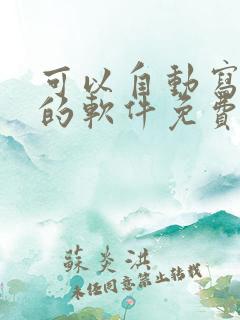 可以自動寫
的軟件免費
蘇炎洪
未经同意禁止转载